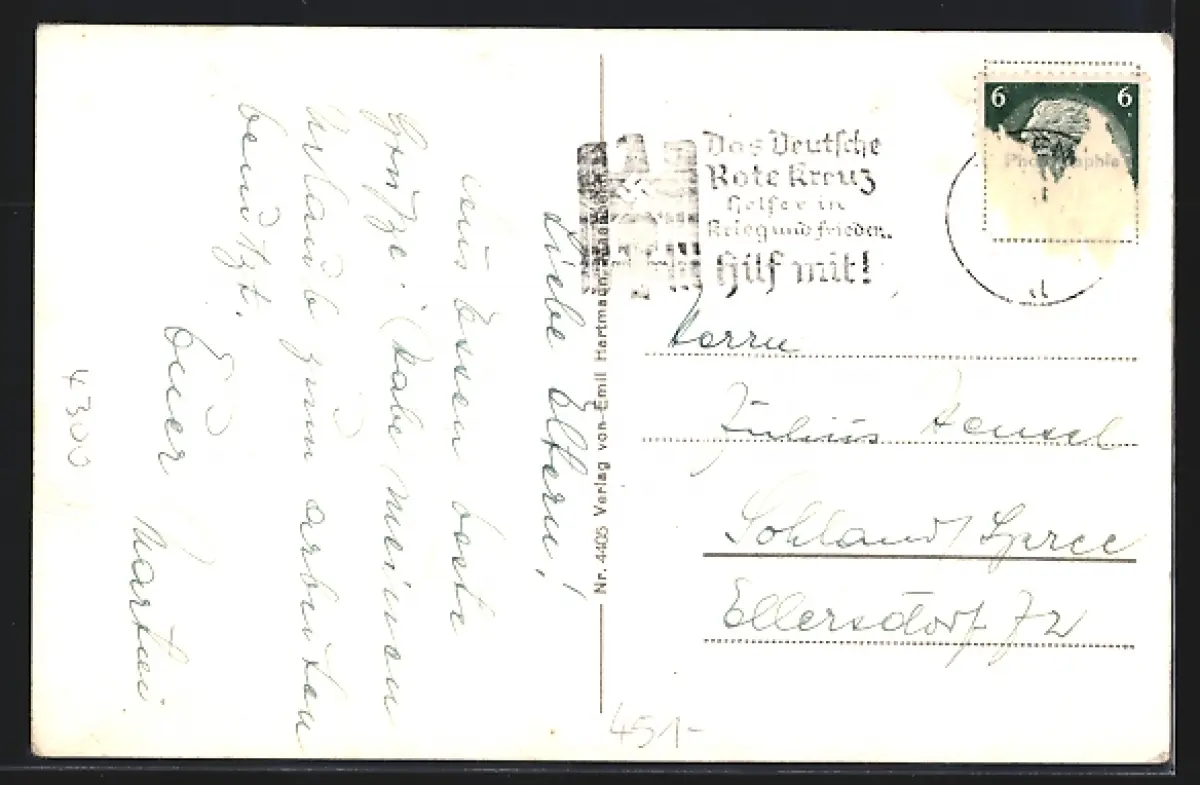 Liebe Eltern!
aus Essen beste
Grüße. (Habe meinen
Urlaub zum arbeiten
benutzt.
Euer Martin
4300
Nr. 4405 Verlag von Emil Hartmann,
Das Deutsche
Rote Kreuz
Helfer in
Krieg und Frieden.
Hilf mit!
6 6
Photographie
Herrn
Julius Hensel
Sohland/Spree
Ellersdorf 72
451-